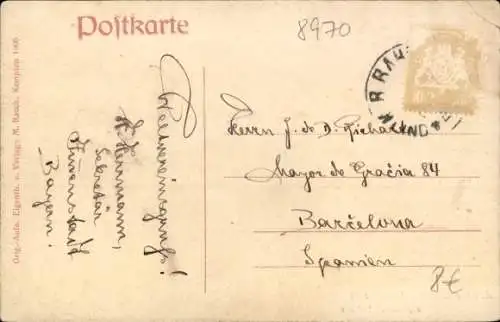 Postkarte
8970
Orig.-Aufn. Eigenth. u. Verlag: M. Rauch, Kempten 1905
Weltvereinsgruß!
H. Herrmann,
Sekretär
Immenstadt
Bayern.
Herrn J. de D.
Mayor de Gracia 84
Barcelona
Spanien
8€